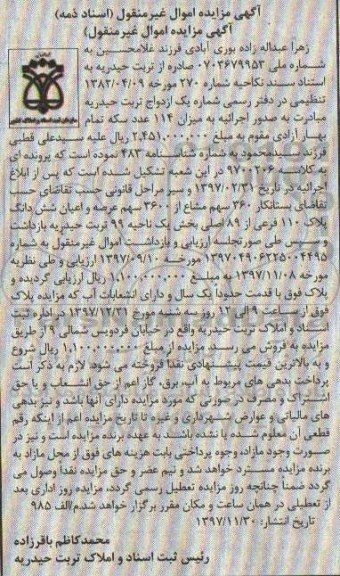 آگهی مزایده اموال غیرمنقول (اسناد ذمه)
آگهی مزایده اموال غیرمنقول)
زهرا عبداله زاده بوری آبادی فرزند غلامحسین به
شماره ملی ۰۷۰۳۶۷۹۹۵۳ صادره از تربت حیدریه به
استناد سند نکاحیه شماره ۲۷۰ مورخه ۱۳۸۲/۰۴/۰۹
تنظیمی در دفتر رسمی شماره یک ازدواج تربت حیدریه
مبادرت به صدور اجرائیه به میزان ۱۱۴ عدد سکه تمام
بهار آزادی مقوم به مبلغ ۲,۴۵۱,۰۰۰,۰۰۰ ریال علیه سیدعلی قطبی
فرزند سیدمحمود به شماره شناسنامه ۴۸۳ نموده است که پرونده ای
به کلاسه ۹۷۰۰۲۰۶ در این شعبه تشکیل شده است که پس از ابلاغ
اجرائیه در تاریخ ۱۳۹۷/۰۲/۳۱ و سیر مراحل قانونی حسب تقاضای حسب
تقاضای بستانکار ۳۶۰ سهم مشاع از ۳۶۰۰ سهم عرصه و اعیان شش دانگ
پلاک ۱۱۰ فرعی از ۸۹ اصلی بخش یک ناحیه ۹۹ تربت حیدریه بازداشت
و سپس طی صورتجلسه ارزیابی و بازداشت اموال غیرمنقول به شماره
۱۳۹۷۰۴۹۰۶۲۲۵۰۰۴۴۹۵ مورخه ۱۳۹۷/۰۹/۱۰ ارزیابی و طی نظریه
مورخه ۱۳۹۷/۱۱/۰۸ به مبلغ ۱,۱۰۰,۰۰۰,۰۰۰ ریال ارزیابی گردیده و
پلاک فوق با قدمت حدوداً یک سال و دارای انشعابات آب که مزایده پلاک
فوق از ساعت ۹ الی ۱۲ روز سه شنبه مورخ ۱۳۹۷/۱۲/۲۱ در اداره ثبت
اسناد و املاک تربت حیدریه واقع در خیابان فردوسی شمالی ۹ از طریق
مزایده به فروش می رسد. مزایده از مبلغ ۱,۱۰۰,۰۰۰,۰۰۰ ریال شروع
و به بالاترین قیمت پیشنهادی نقداً فروخته می شود. لازم به ذکر است
پرداخت بدهی های مربوط به آب، برق، گاز اعم از حق انشعاب و یا حق
اشتراک و مصرف در صورتی که مورد مزایده دارای آنها باشد و نیز بدهی
های مالیاتی و عوارض شهرداری و غیره تا تاریخ مزایده اعم از اینکه رقم
قطعی آن معلوم شده یا نشده باشد به عهده برنده مزایده است و نیز در
صورت وجود مازاد، وجوه پرداختی بابت هزینه های فوق از محل مازاد به
برنده مزایده مسترد خواهد شد و نیم عشر و حق مزایده نقدا وصول می
گردد ضمناً چنانچه روز مزایده تعطیل رسمی گردد، مزایده روز اداری بعد
از تعطیلی در همان ساعت و مکان مقرر برگزار خواهد شد.م/الف ۹۸۵
تاریخ انتشار: ۱۳۹۷/۱۱/۳۰
محمدکاظم باقرزاده
رئیس ثبت اسناد و املاک تربت حیدریه